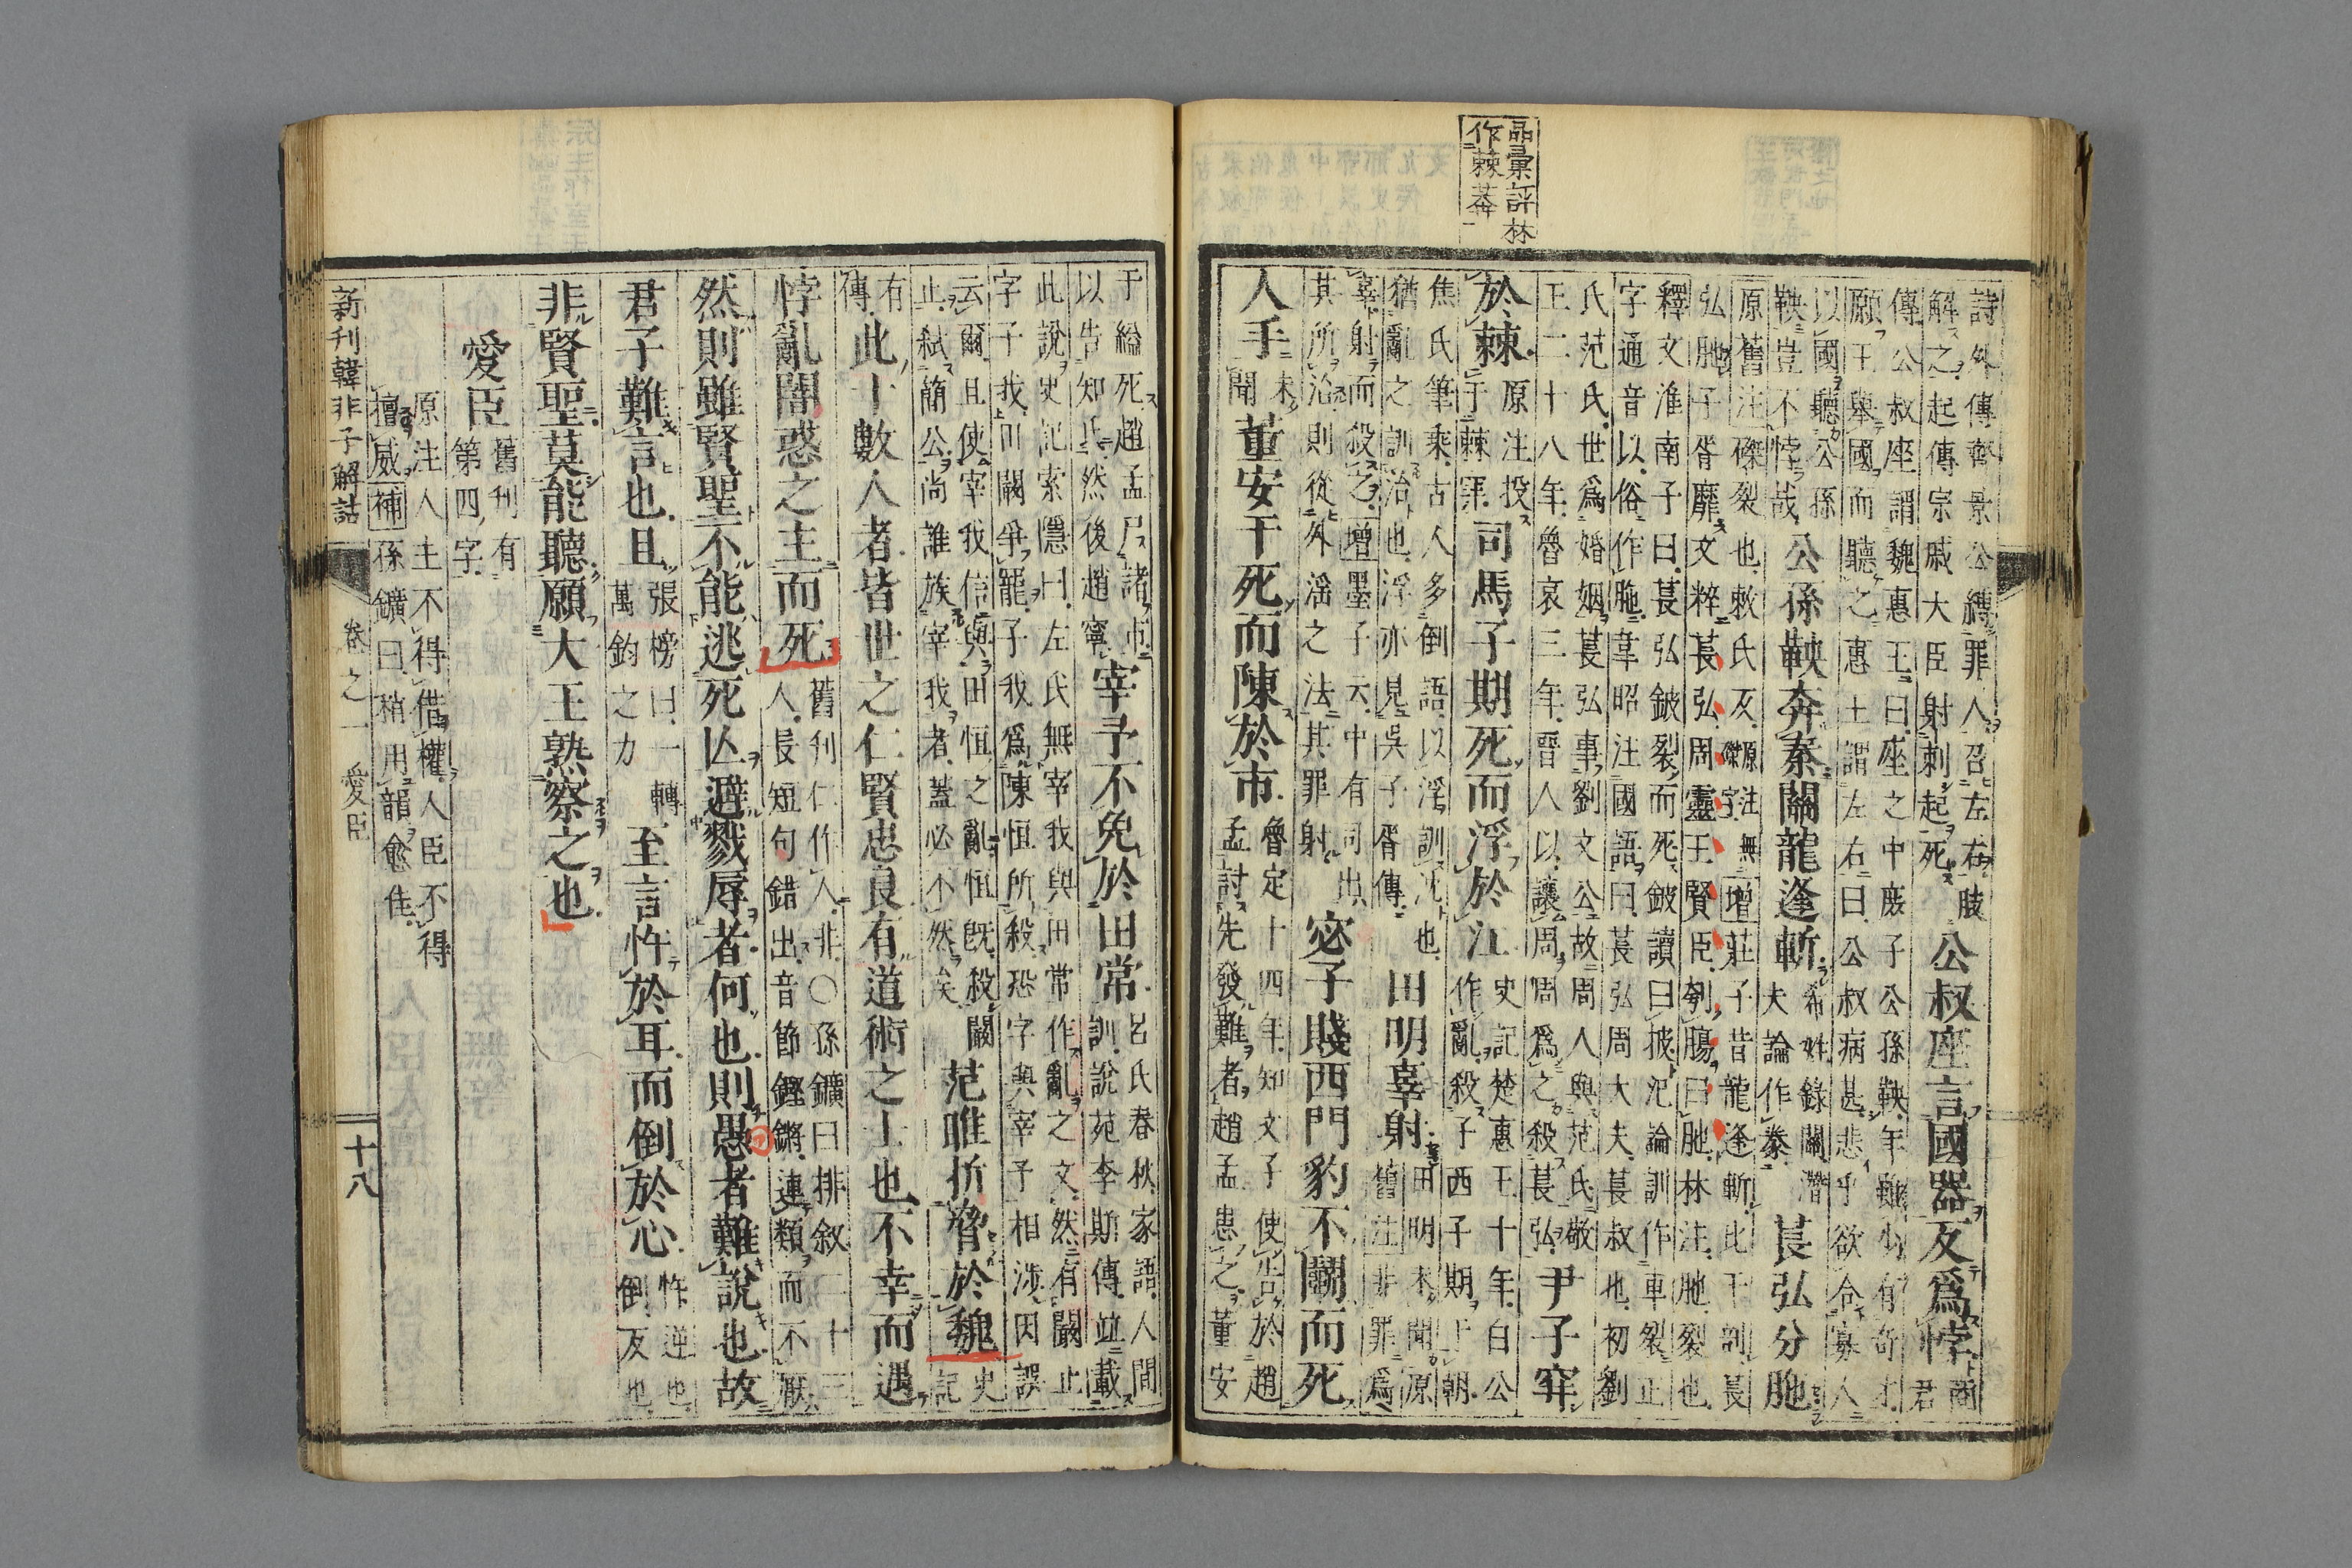 品彙評林
作棘菴
詩外傳齊景公縛罪人召左右肢
解之起傳宗戚大臣射刺起死
公叔座言國器反爲悖
商
君
傳公叔座謂魏惠王曰座之中庶子公孫鞅年雖少有奇才
願王舉國而聽之惠王謂左右曰公叔病甚悲乎欲令寡人
以國聽公孫
鞅豈不悖哉
公孫鞅奔秦關龍逢斬
希姓錄關潛
夫論作豢
萇弘分胣
原舊注磔裂也敕氏反原注無磔字增莊子昔龍逢斬比干剖萇
弘胣子胥靡文粹萇弘周靈王賢臣刳腸曰胣林注胣裂也
釋文淮南子曰萇弘鈹裂而死鈹讀曰披氾論訓作車裂正
字通音以俗作胣韋昭注國語曰萇弘周大夫萇叔也初劉
氏范氏世爲婚姻萇弘事劉文公故周人與范氏敬
王二十八年魯哀三年晉人以讓周周爲之殺萇弘
尹子穽
於棘
原注投
于棘穽
司馬子期死而浮於江
史記楚惠王十年白公
作亂殺子西子期于朝
焦氏筆乘古人多倒語以浮訓沈也
猶亂之訓治也浮亦見吳子胥傳
田明辜射
田明未聞原
舊注非罪爲
辜射而殺之增墨子云中有司出
其所治則從外淫之法其罪射
宓子賤西門豹不鬭而死
人手
未
聞
董安于死而陳於市
魯定十四年知文子使告於趙
孟討先發難者趙孟患之董安
于縊死趙孟尸諸市
以告知氏然後趙寧
宰予不免於田常
呂氏春秋家語人間
訓說苑李斯傳並載
此說史記索隱曰左氏無宰我與田常作亂之文然有闞止
字子我田闞爭寵子我爲陳恒所殺恐字與宰予相涉因誤
云爾且使宰我信與田恒之亂恒旣殺闞
止弒簡公尚誰族宰我者蓋必不然矣
范睢折脅於魏
史
記
有
傳
此十數人者皆世之仁賢忠良有道術之士也不幸而遇
悖亂闇惑之主而死
舊刊仁作人非○孫鑛曰排敘二十三
人長短句錯出音節鏗鏘連類而不厭
然則雖賢聖不能逃死亾避戮辱者何也則愚者難說也故
君子難言也且
張榜曰一轉
萬鈞之力
至言忤於耳而倒於心
忤逆也
倒反也
非賢聖莫能聽願大王熟察之也
愛臣
舊刊有
第四字
原注人主不得借權人臣不得
擅威補孫鑛曰稍用韻愈佳
新刊韓非子解詁 卷之一 愛臣 十八